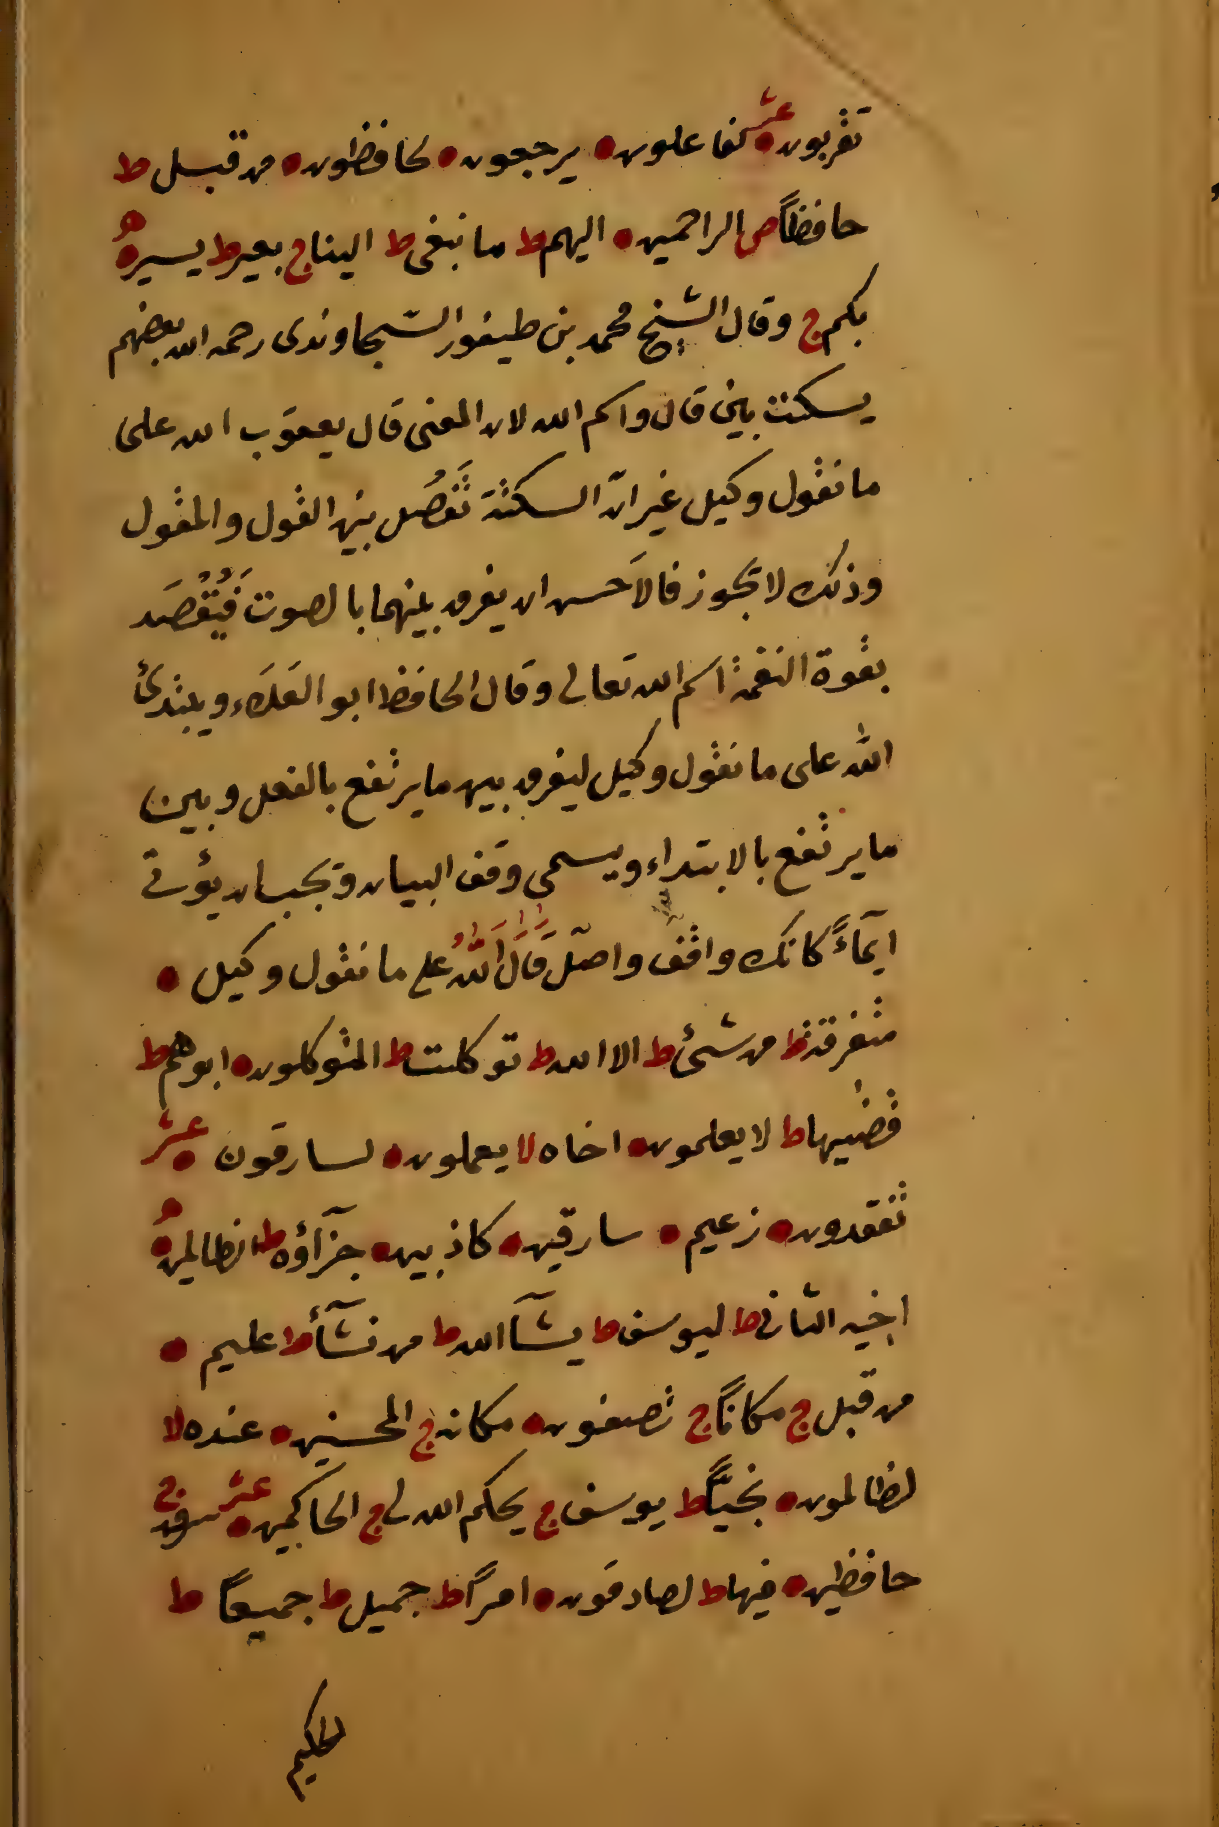 تقربون ● عشر لفاعلون ● يرجعون ● لحافظون ● من قبل ط
حافظاً ص الراحمين ● اليهم ط ما نبغي ط الينا ج بعير ط يسير ● ه
بكم ج وقال الشيخ محمد بن طيفور السّجاوندى رحمه الله بعضهم
يسكت بين قال واسم الله لان المعنى قال يعقوب الله على
ما نقول وكيل غير انّ السكتة تَفصُل بين القول والمقول
وذلك لا يجوز فالاَحسن ان يفرق بينهما بالصوت فَيُقْصَد
بقوة النغمة اسم الله تعالى وقال الحافظ ابو العَلَاء ويبتدئ
الله على ما نقول وكيل ليفرق بين ما يرتفع بالفعل وبين
ما يرتفع بالابتداء ويسمى وقف البيان ويجب ان يؤتى
ايمآءً كانك واقف واصل قَالَ اَللّٰهُ على ما نقول وكيل ●
متفرقة ط من شئ ط الا الله ط توكلت ط المتوكلون ● ابوهم ط
قضيها ط لا يعلمون ● اخاه لا يعملون ● لسارقون ● عشر
تفقدون ● زعيم ● سارقين ● كاذبين ● جزآؤه ط الظالمين ● ه
اخيه الثانى ط ليوسف ط يشآ الله ط من نشآء ط عليم ●
من قبل ج مكاناً ج تصفون ● مكانه ج المحسنين ● عنده لا
لظالمون ● نجيّاً ط يوسف ج يحكم الله لى ج الحاكمين ● عشر سرق ج
حافظين ● فيها ط لصادقون ● امراً ط جميل ط جميعاً ط
الحكيم